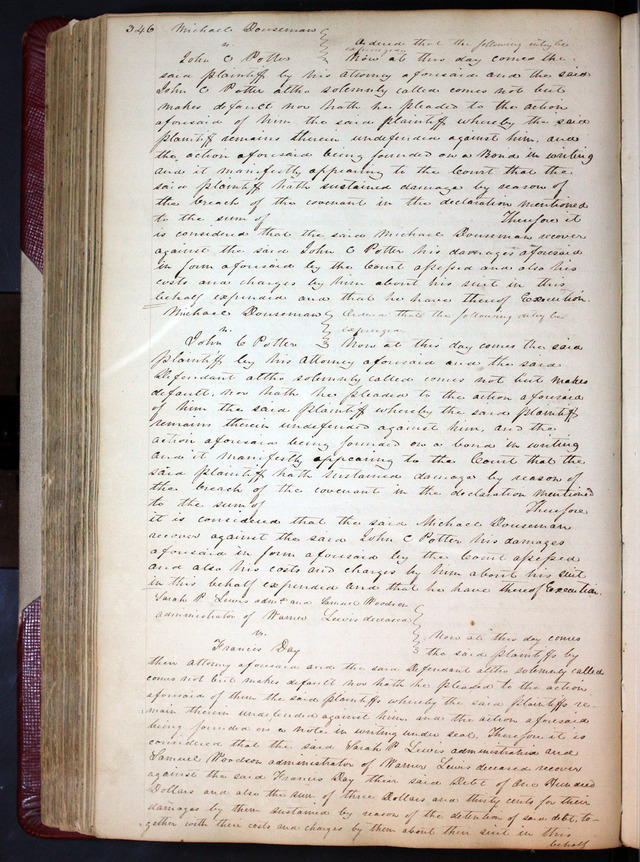 346 Michael Douseman
vs. Ordered that the following entry be
expunged
John C Potter Now at this day comes the
said plaintiff by his attorney aforesaid and the said
John C Potter altho solemnly called comes not but
makes default nor hath he pleaded to the action
aforesaid of him the said plaintiff whereby the said
plaintiff remains therein undefended against him, and
the action aforesaid being founded on a Bond in writing
and it manifestly appearing to the Court that the
said plaintiff hath sustained damage by reason of
the breach of the covenant in the declaration mentioned
to the sum of Therefore it
is considered that the said Michael Douseman recover
against the said John C Potter his damages aforesaid
in form aforesaid by the Court assessed and also his
costs and charges by him about his suit in this
behalf expended and that he have thereof Execution.
Michael Douseman Ordered that the following entry be
vs. expunged
John C Potter Now at this day comes the said
plaintiff by his attorney aforesaid and the said
Defendant altho solemnly called comes not but makes
default, nor hath he pleaded to the action aforesaid
of him the said plaintiff whereby the said plaintiff
remains therein undefended against him, and the
action aforesaid being founded on a bond in writing
and it manifestly appearing to the Court that the
said plaintiff hath sustained damage by reason of
the breach of the covenant in the declaration mentioned
to the sum of Therefore
it is considered that the said Michael Douseman
recover against the said John C Potter his damages
aforesaid in form aforesaid by the Court assessed
and also his costs and charges by him about his suit
in this behalf expended and that he have thereof Execution.
Sarah P Lewis admx and Samuel Woodson
administrator of Warner Lewis deceased
vs. Now at this day comes
Francis Day the said plaintiffs by
their attorney aforesaid and the said Defendant altho solemnly called
comes not but makes default nor hath he pleaded to the action
aforesaid of them the said plaintiffs whereby the said plaintiffs re-
main therein undefended against him, and the action aforesaid
being founded on a note in writing under seal, Therefore it is
considered that the said Sarah P Lewis administratrix and
Samuel Woodson administrator of Warner Lewis deceased recover
against the said Francis Day their said Debt of One Hundred
Dollars and also the sum of three Dollars and thirty cents for their
damages by them sustained by reason of the detention of said debt, to-
gether with their costs and charges by them about their suit in this
behalf